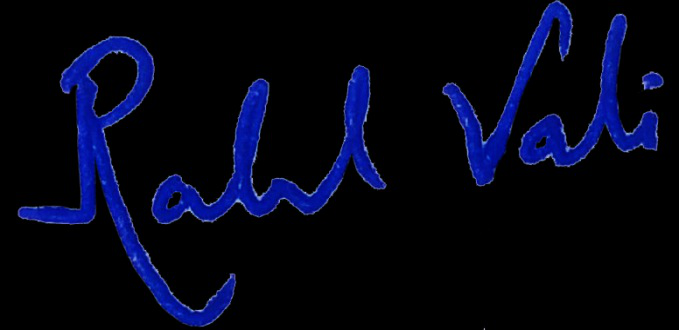 Rahul Vali